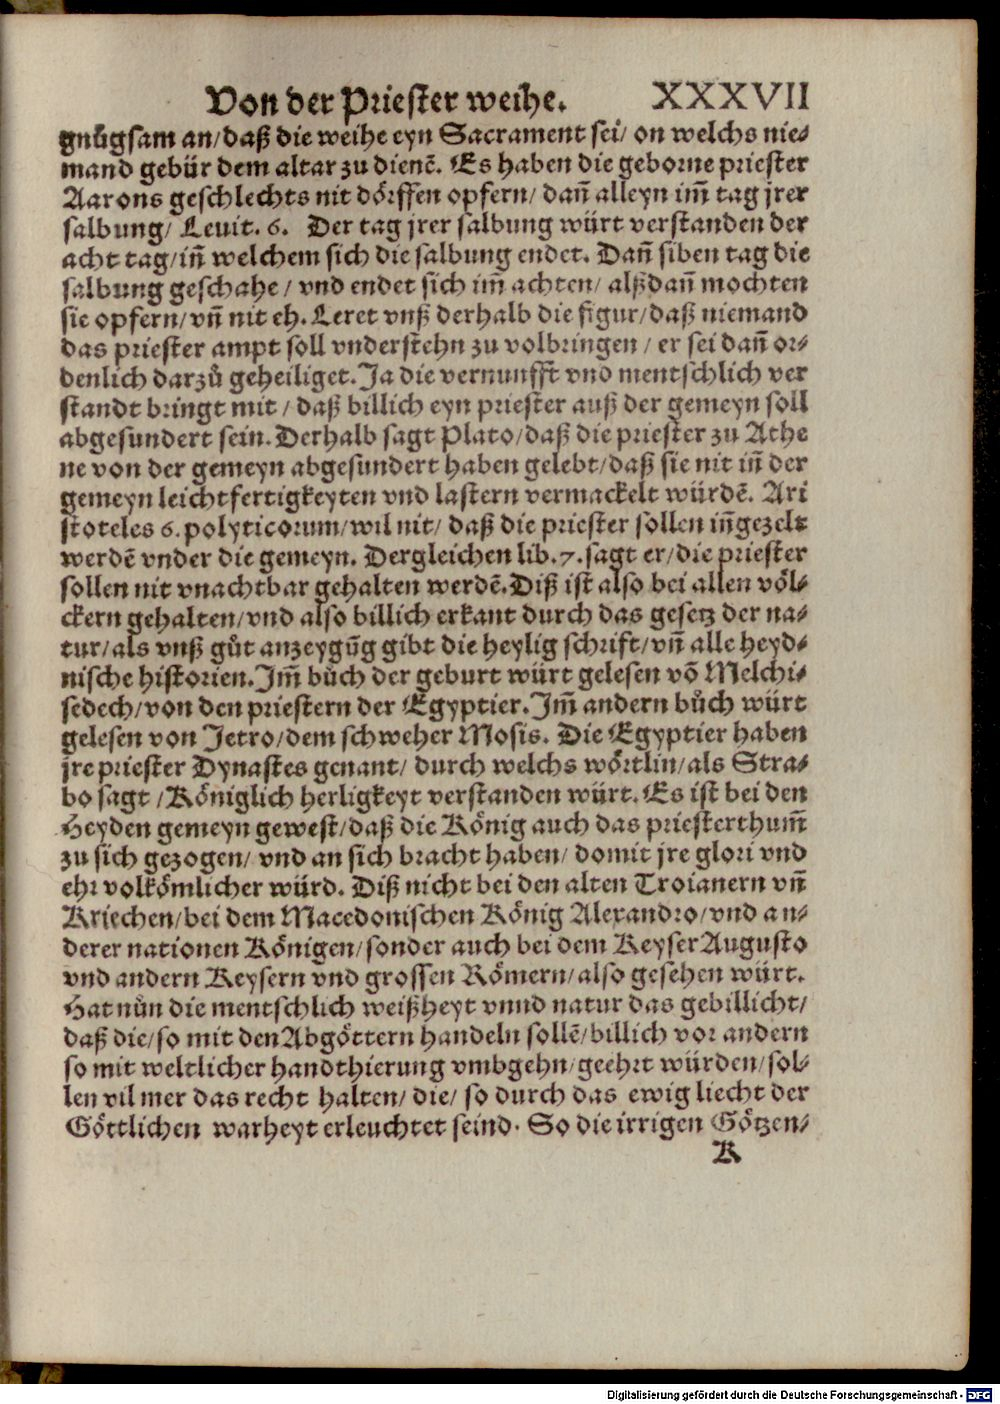 Von der Priester weihe. XXXVII
gnůgsam an/ daß die weihe eyn Sacrament sei/ on welchs nie-
mand gebür dem altar zu dienẽ. Es haben die geborne priester
Aarons geschlechts nit dörffen opfern/ dañ alleyn im̃ tag jrer
salbung/ Leuit. 6. Der tag jrer salbung würt verstanden der
acht tag/ iñ welchem sich die salbung endet. Dañ siben tag die
salbung geschahe/ vnd endet sich im̃ achten/ alßdañ mochten
sie opfern/ vñ nit eh. Leret vnß derhalb die figur/ daß niemand
das priester ampt soll vnderstehn zu volbringen/ er sei dañ or-
denlich darzů geheiliget. Ja die vernunfft vnd mentschlich ver
standt bringt mit/ daß billich eyn priester auß der gemeyn soll
abgesundert sein. Derhalb sagt Plato/ daß die priester zu Athe
ne von der gemeyn abgesundert haben gelebt/ daß sie nit iñ der
gemeyn leichtfertigkeyten vnd lastern vermackelt würdẽ. Ari
stoteles 6. polyticorum/ wil nit/ daß die priester sollen iñgezelt
werdẽ vnder die gemeyn. Dergleichen lib. 7. sagt er/ die priester
sollen nit vnachtbar gehalten werdẽ. Diß ist also bei allen völ-
ckern gehalten/ vnd also billich erkant durch das gesetz der na-
tur/ als vnß gůt anzeygũg gibt die heylig schrift/ vñ alle heyd-
nische historien. Im̃ bůch der geburt würt gelesen võ Melchi-
sedech/ von den priestern der Egyptier. Im̃ andern bůch würt
gelesen von Jetro/ dem schweher Mosis. Die Egyptier haben
jre priester Dynastes genant/ durch welchs wörtlin/ als Stra-
bo sagt/ Königlich herligkeyt verstanden würt. Es ist bei den
Heyden gemeyn gewest/ daß die König auch das priesterthum̃
zu sich gezogen/ vnd an sich bracht haben/ domit jre glori vnd
ehr volkõmlicher würd. Diß nicht bei den alten Troianern vñ
Kriechen/ bei dem Macedonischen König Alexandro/ vnd an-
derer nationen Königen/ sonder auch bei dem Keyser Augusto
vnd andern Keysern vnd grossen Römern/ also gesehen würt.
Hat nůn die mentschlich weißheyt vnnd natur das gebillicht/
daß die/ so mit den Abgöttern handeln sollẽ/ billich vor andern
so mit weltlicher handthierung vmbgehn/ geehrt würden/ sol-
len vil mer das recht halten/ die/ so durch das ewig liecht der
Göttlichen warheyt erleuchtet seind. So die irrigen Götzen-
K
Digitalisierung gefördert durch die Deutsche Forschungsgemeinschaft - DFG